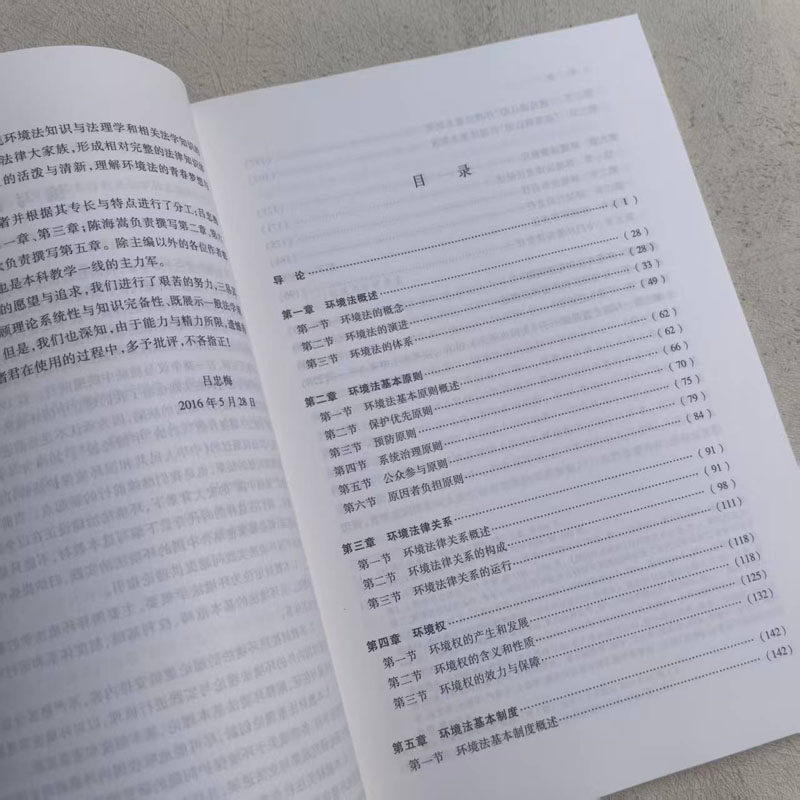 环境法知识与法理学和相关法学知识
法律大家族，形成相对完整的法律知识
的活泼与清新，理解环境法的青春梦想
者并根据其专长与特点进行了分工：吕忠
一章、第三章；陈海嵩负责撰写第二章、第六
负责撰写第五章。除主编以外的各位作者
也是本科教学一线的主力军。
的愿望与追求，我们进行了艰苦的努力，三易
顾理论系统性与知识完备性、既展示一般法学
但是，我们也深知，由于能力与精力所限，遗憾
者君在使用的过程中，多予批评，不吝指正！
吕忠梅
2016年5月28日
目 录
导 论 (1)
第一章 环境法概述 (28)
第一节 环境法的概念 (28)
第二节 环境法的演进 (33)
第三节 环境法的体系 (49)
第二章 环境法基本原则 (62)
第一节 环境法基本原则概述 (62)
第二节 保护优先原则 (66)
第三节 预防原则 (70)
第四节 系统治理原则 (75)
第五节 公众参与原则 (79)
第六节 原因者负担原则 (84)
第三章 环境法律关系 (91)
第一节 环境法律关系概述 (91)
第二节 环境法律关系的构成 (98)
第三节 环境法律关系的运行 (111)
第四章 环境权 (118)
第一节 环境权的产生和发展 (118)
第二节 环境权的含义和性质 (125)
第三节 环境权的效力与保障 (132)
第五章 环境法基本制度 (142)
第一节 环境法基本制度概述 (142)